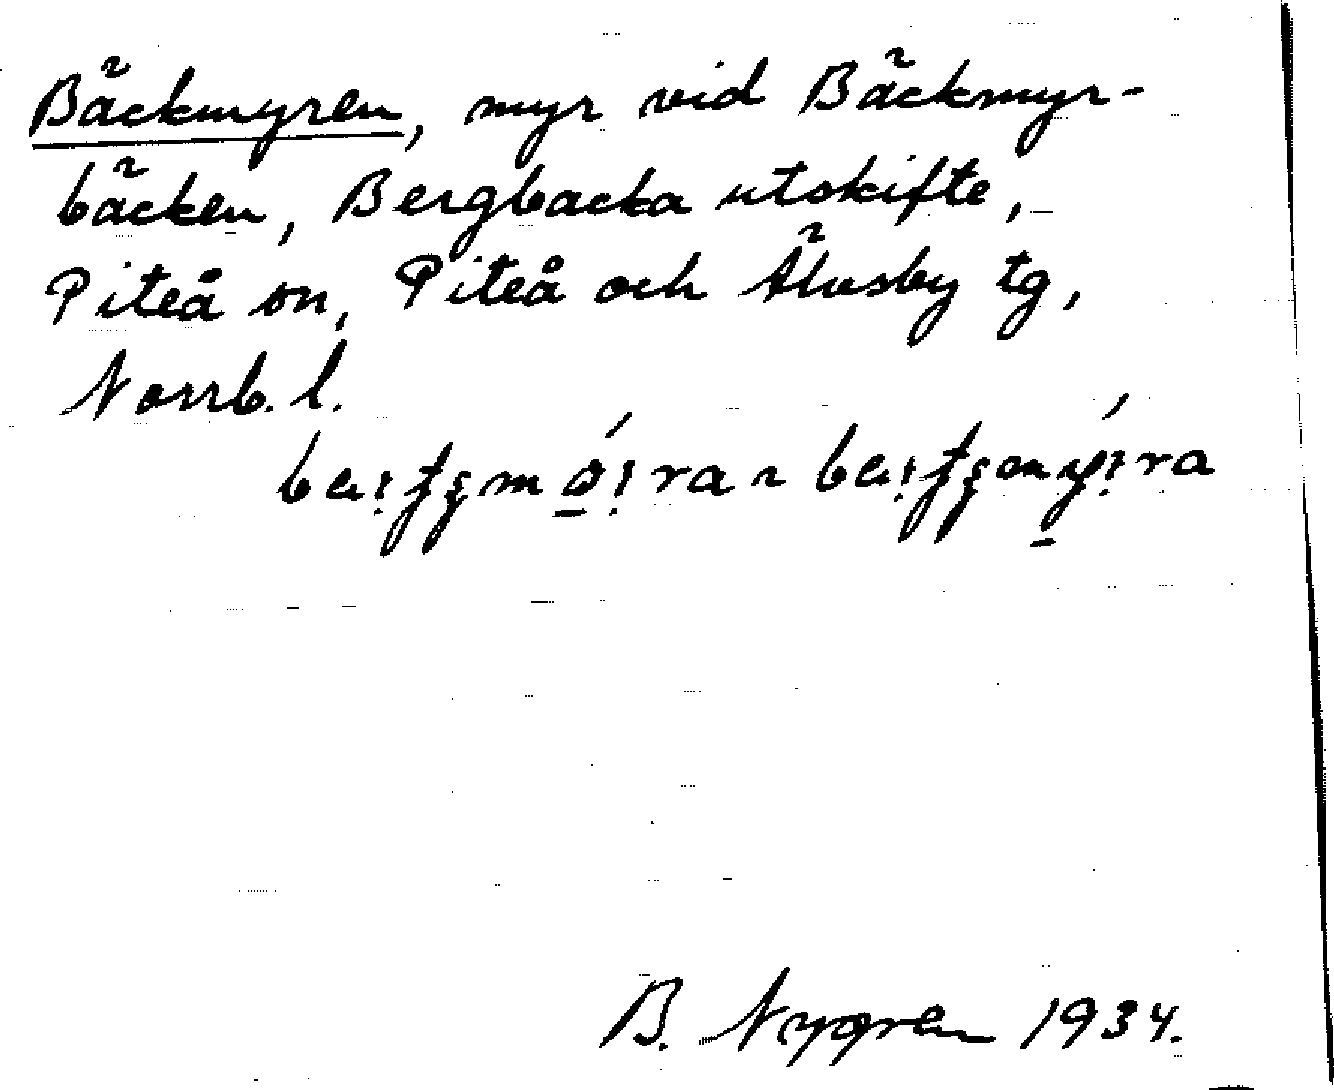 Bäckmyren, myr vid Bäckmyr-
bäcken, Bergbacka utskifte,
Piteå sn, Piteå och Älvsby tg,
Norrb. l.
B. Nygren 1934.